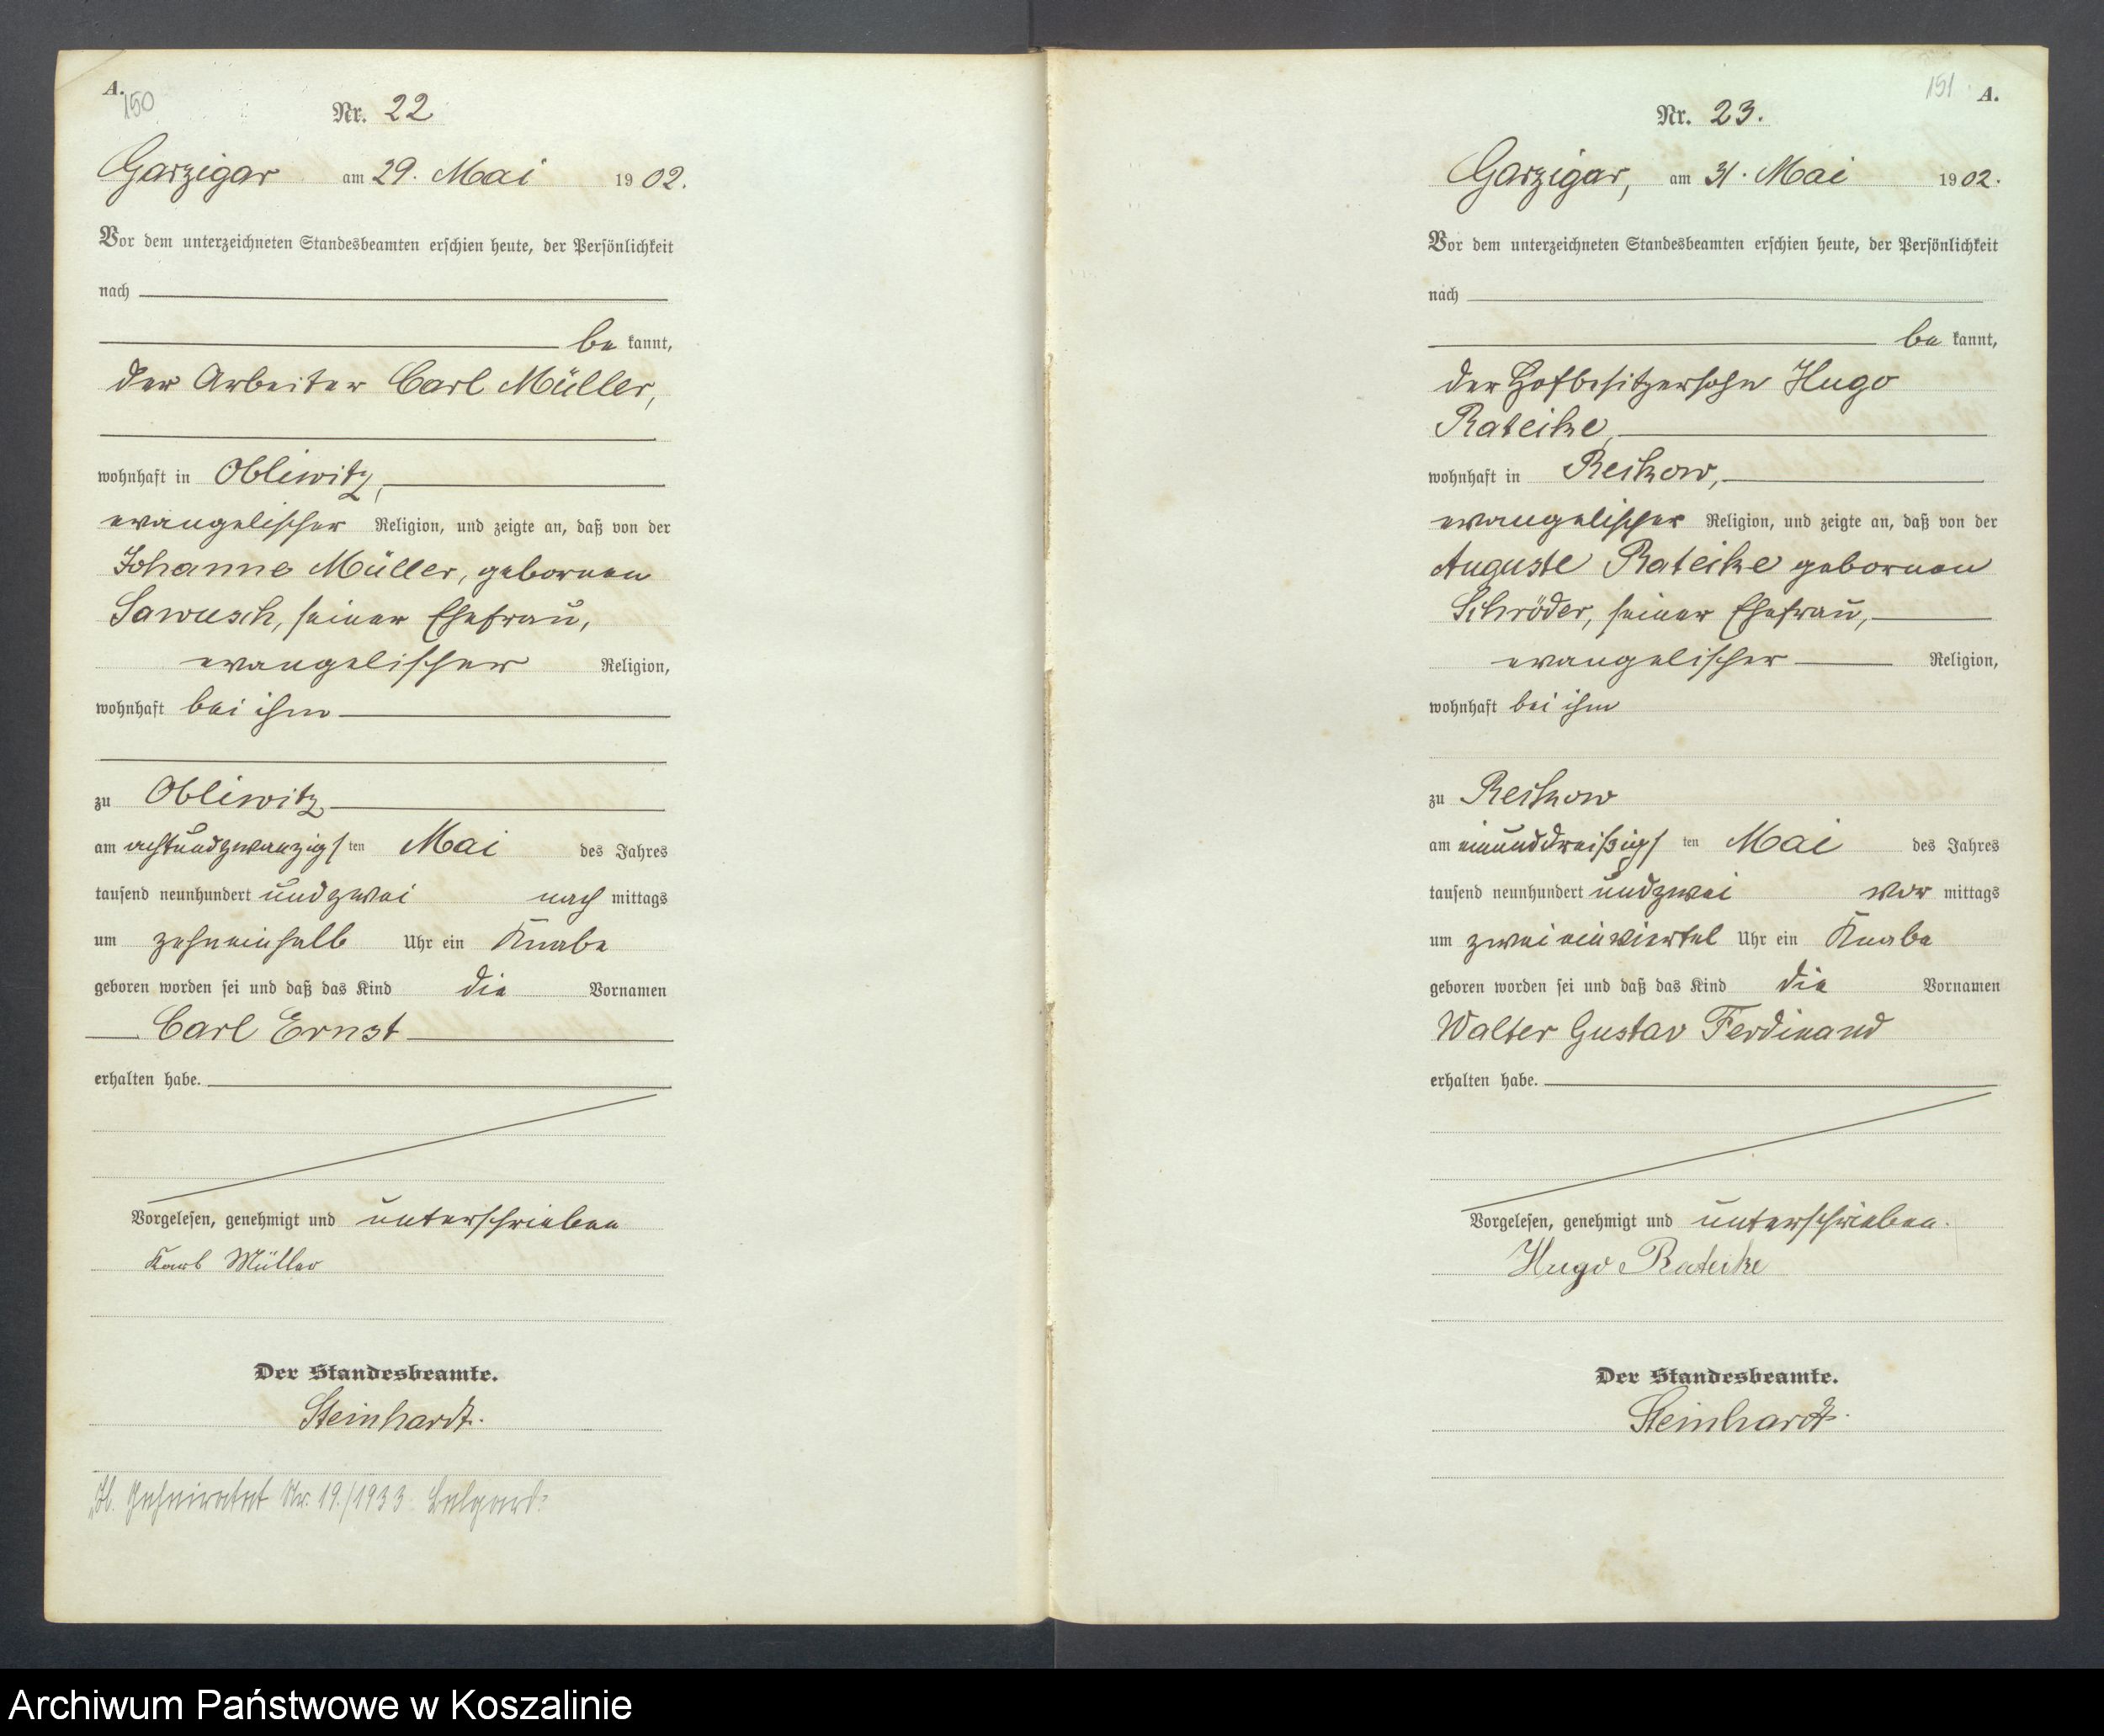 A.
150
Nr. 22
Garzigar am 29. Mai 1902.
Vor dem unterzeichneten Standesbeamten erschien heute, der Persönlichkeit
nach
be kannt,
der Arbeiter Carl Müller,
wohnhaft in Obliwitz,
evangelischer Religion, und zeigte an, daß von der
Johanne Müller, geborenen
Sawusch, seiner Ehefrau,
evangelischer Religion,
wohnhaft bei ihm
zu Obliwitz
am achtundzwanzigsten Mai des Jahres
tausend neunhundert undzwei nach mittags
um zehneinhalb Uhr ein Knabe
geboren worden sei und daß das Kind die Vornamen
Carl Ernst
erhalten habe.
Vorgelesen, genehmigt und unterschrieben
Karl Müller
Der Standesbeamte.
Steinhardt.
Nr. 19./1933 Belgard.
151 A.
Nr. 23.
Garzigar, am 31. Mai 1902.
Vor dem unterzeichneten Standesbeamten erschien heute, der Persönlichkeit
nach
be kannt,
der Hofbesitzersohn Hugo
Rateike,
wohnhaft in Reskow,
evangelischer Religion, und zeigte an, daß von der
Auguste Rateike geborenen
Schröder, seiner Ehefrau,
evangelischer Religion,
wohnhaft bei ihm
zu Reskow
am einunddreißigsten Mai des Jahres
tausend neunhundert undzwei vor mittags
um zweieinviertel Uhr ein Knabe
geboren worden sei und daß das Kind die Vornamen
Walter Gustav Ferdinand
erhalten habe.
Vorgelesen, genehmigt und unterschrieben.
Hugo Rateike
Der Standesbeamte.
Steinhardt.
Archiwum Państwowe w Koszalinie